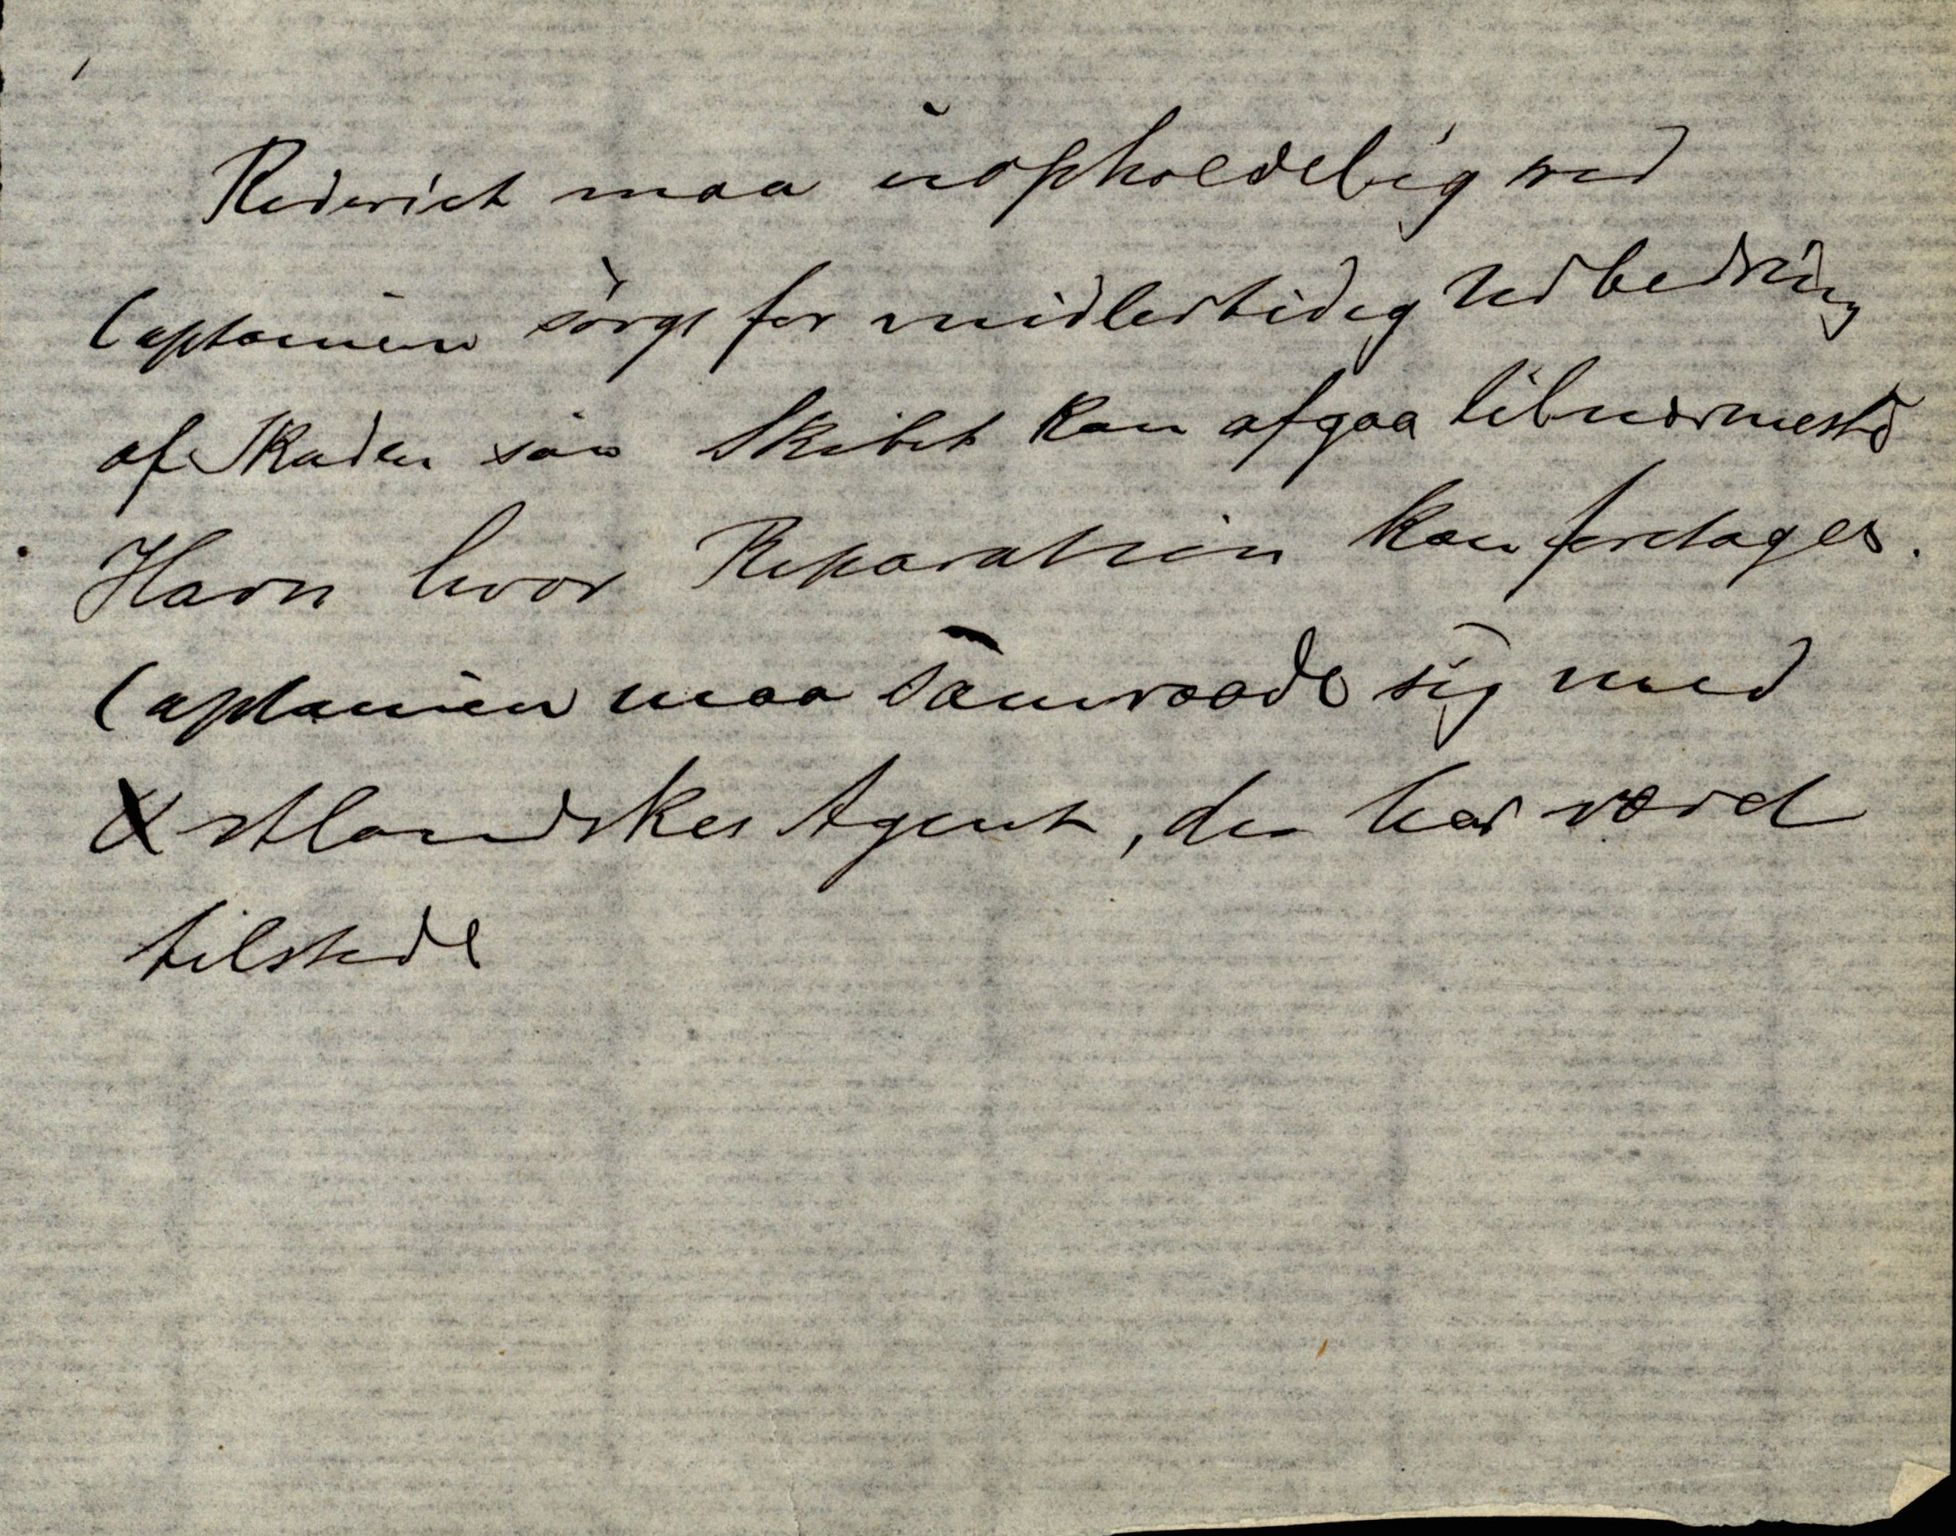 Rederiet maa uopholdelig ved
Captainen sörge for midlertidig Udbedring
af Skaden saa Skibet kan afgaa til nærmeste
Havn hvor Reparation kan foretages.
Captainen maa samraade sig med
Agent, der har været
tilstede